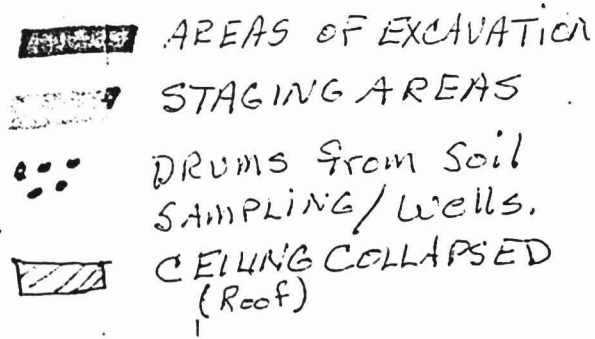 AREAS OF EXCAVATION
STAGING AREAS
DRUMS from Soil
SAMPLING/Wells.
CEILING COLLAPSED
(Roof)